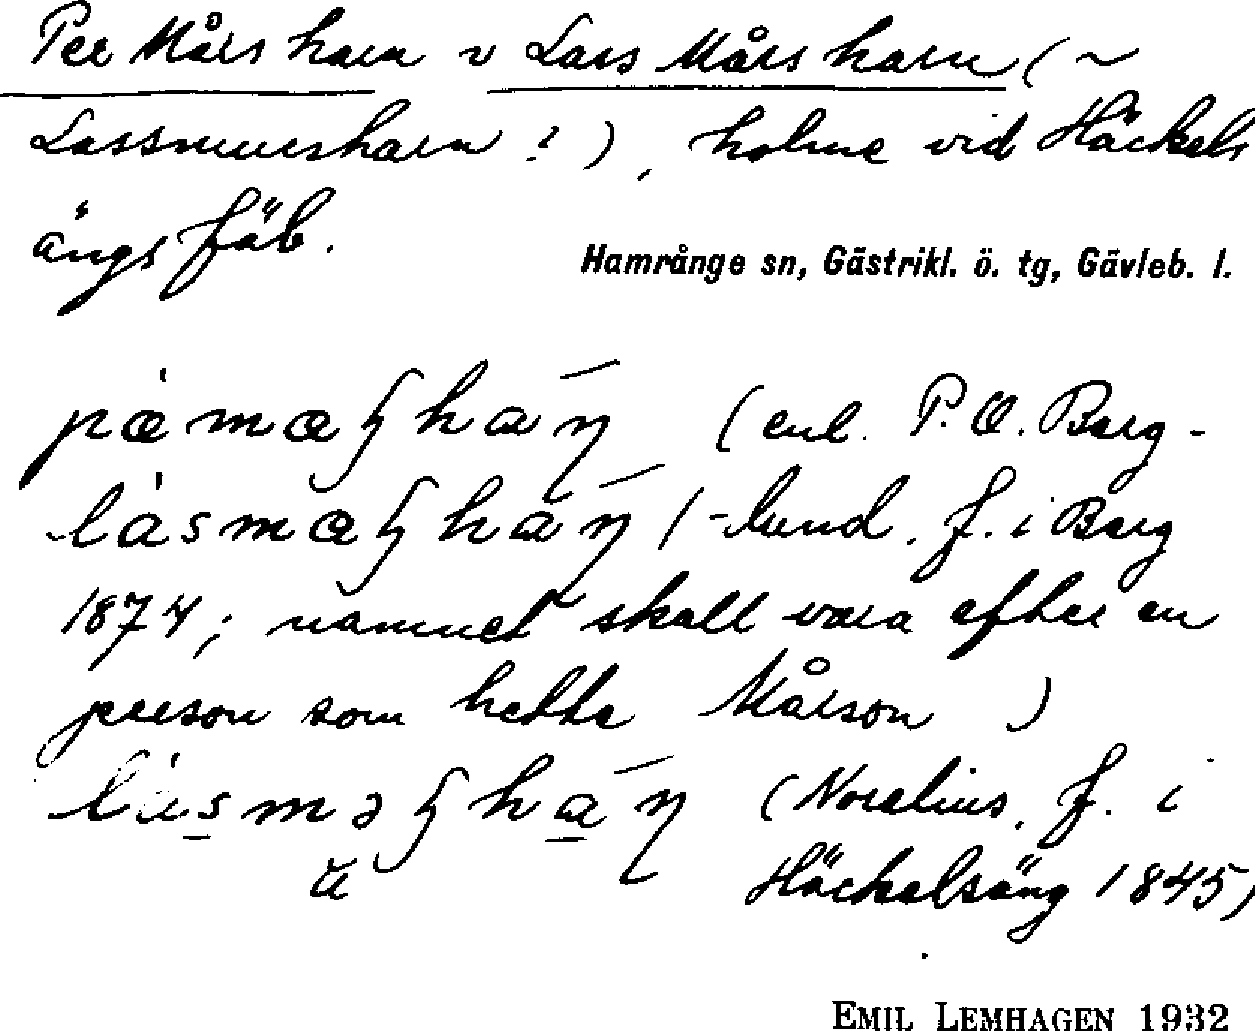 Per Mårs harn v Lars Mårs harn (~
Lassmursharn ?), holme vid Häckels
ängs fäb.
Hamrånge sn, Gästrikl. ö. tg, Gävleb. l.
(enl. P. O. Berg-
/-lund, f. i Berg
1874; namnet skall vara efter en
person som hette Mårson )
(Norelius, f. i
Häckelsäng 1845)
EMIL LEMHAGEN 1932